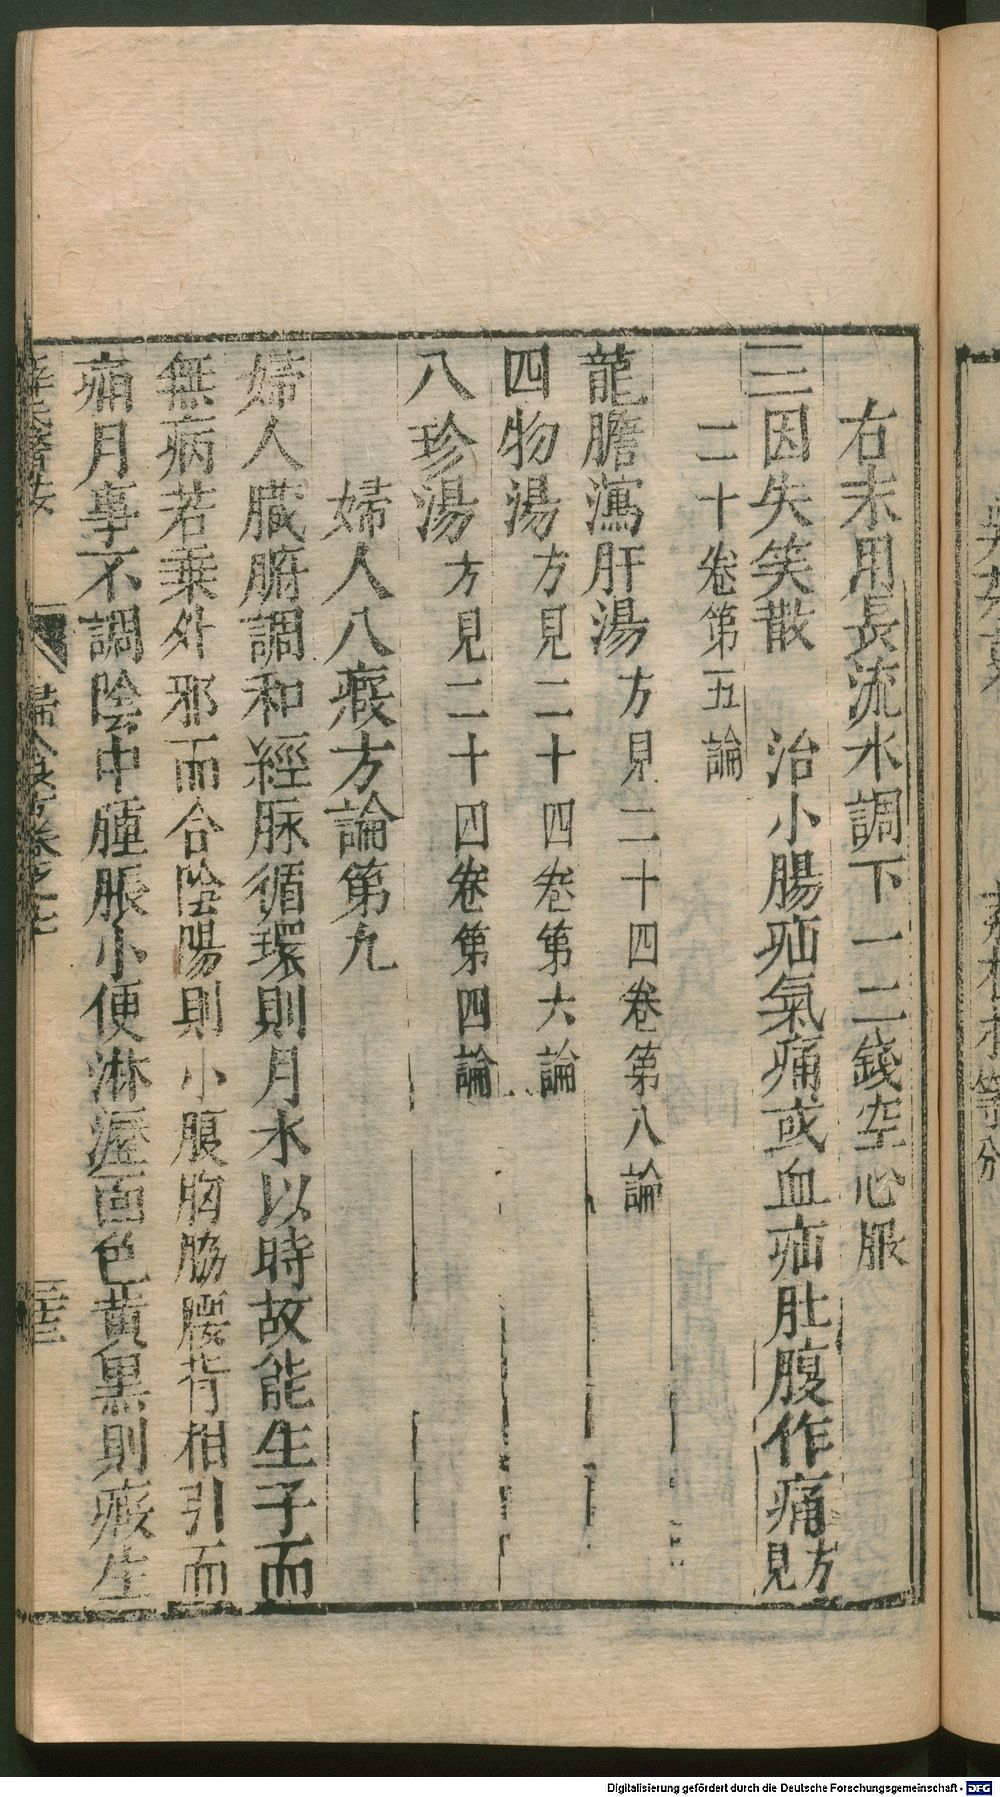 右末用長流水調下一二錢空心服
三因失笑散　治小腸疝氣痛或血疝肚腹作痛方見
二十卷第五論
龍膽瀉肝湯方見二十四卷第八論
四物湯方見二十四卷第六論
八珍湯方見二十四卷第四論
婦人八瘕方論第九
婦人臟腑調和經脉循環則月水以時故能生子而
無病若乗外邪而合陰陽則小腹胸脇腰背相引而
痛月事不調陰中腫脹小便淋瀝面色黄黒則瘕生
婦人良方卷之七
Digitalisierung gefördert durch die Deutsche Forschungsgemeinschaft - DFG